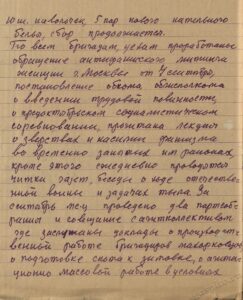 10 шт. наволочек, 5 пар нового нательного
белья, сбор продолжается.
По всем бригадам, цехам проработано
обращение антифашистского митинга
женщин г. Москвы от 7 сентября,
постановление обкома, облисполкома
о введении трудовой повинности,
о предоктябрьском социалистическом
соревновании, прочитана лекция
о зверствах и насилии фашизма
во временно занятых им районах,
кроме этого ежедневно проводятся
читки газет, беседы о ходе отечестве-
нной войны и задачах тыла. За
сентябрь м-ц проведено два партсоб-
рания и совещание с агитколлективом
где заслушаны доклады о производст-
венной работе бригадиров махорковод
о подготовке скота к зимовке, о агита-
ционно массовой работе в условиях